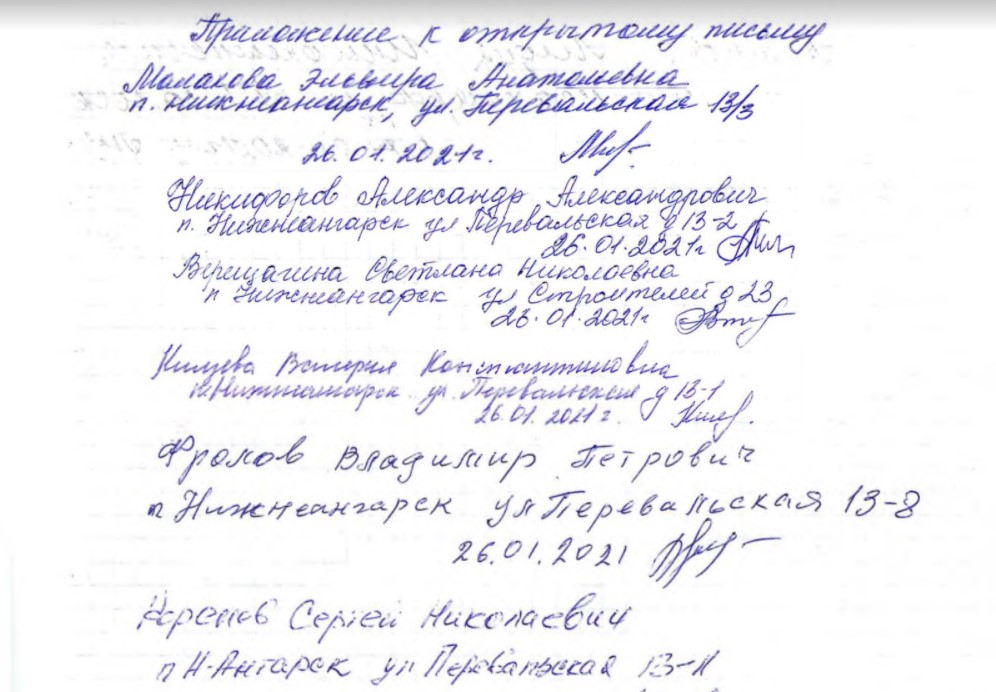 Приложение к открытому письму
Малакова Эльвира Анатольевна
п. Нижнеангарск, ул. Перевальская 13/3
26.01.2021г.
Никифоров Александр Александрович
п. Нижнеангарск ул Перевальская д 13-2
26.01.2021г
Верещагина Светлана Николаевна
п Нижнеангарск ул Строителей д 23
23.01.2021г
Валерия Константиновна
п. Нижнеангарск ул. Перевальская д 13-1
26.01.2021г.
Фролов Владимир Петрович
п Нижнеангарск ул Перевальская 13-8
26.01.2021
Сергей Николаевич
п Н-Ангарск ул Перевальская